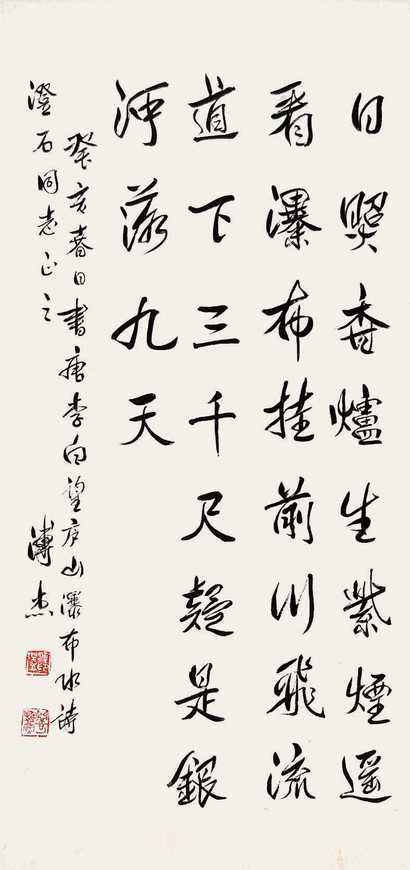 日照香爐生紫煙遥
看瀑布挂前川飛流
直下三千尺疑是銀
河落九天
癸亥春日書唐李白望庐山瀑布水詩
澄石同志正之
溥杰